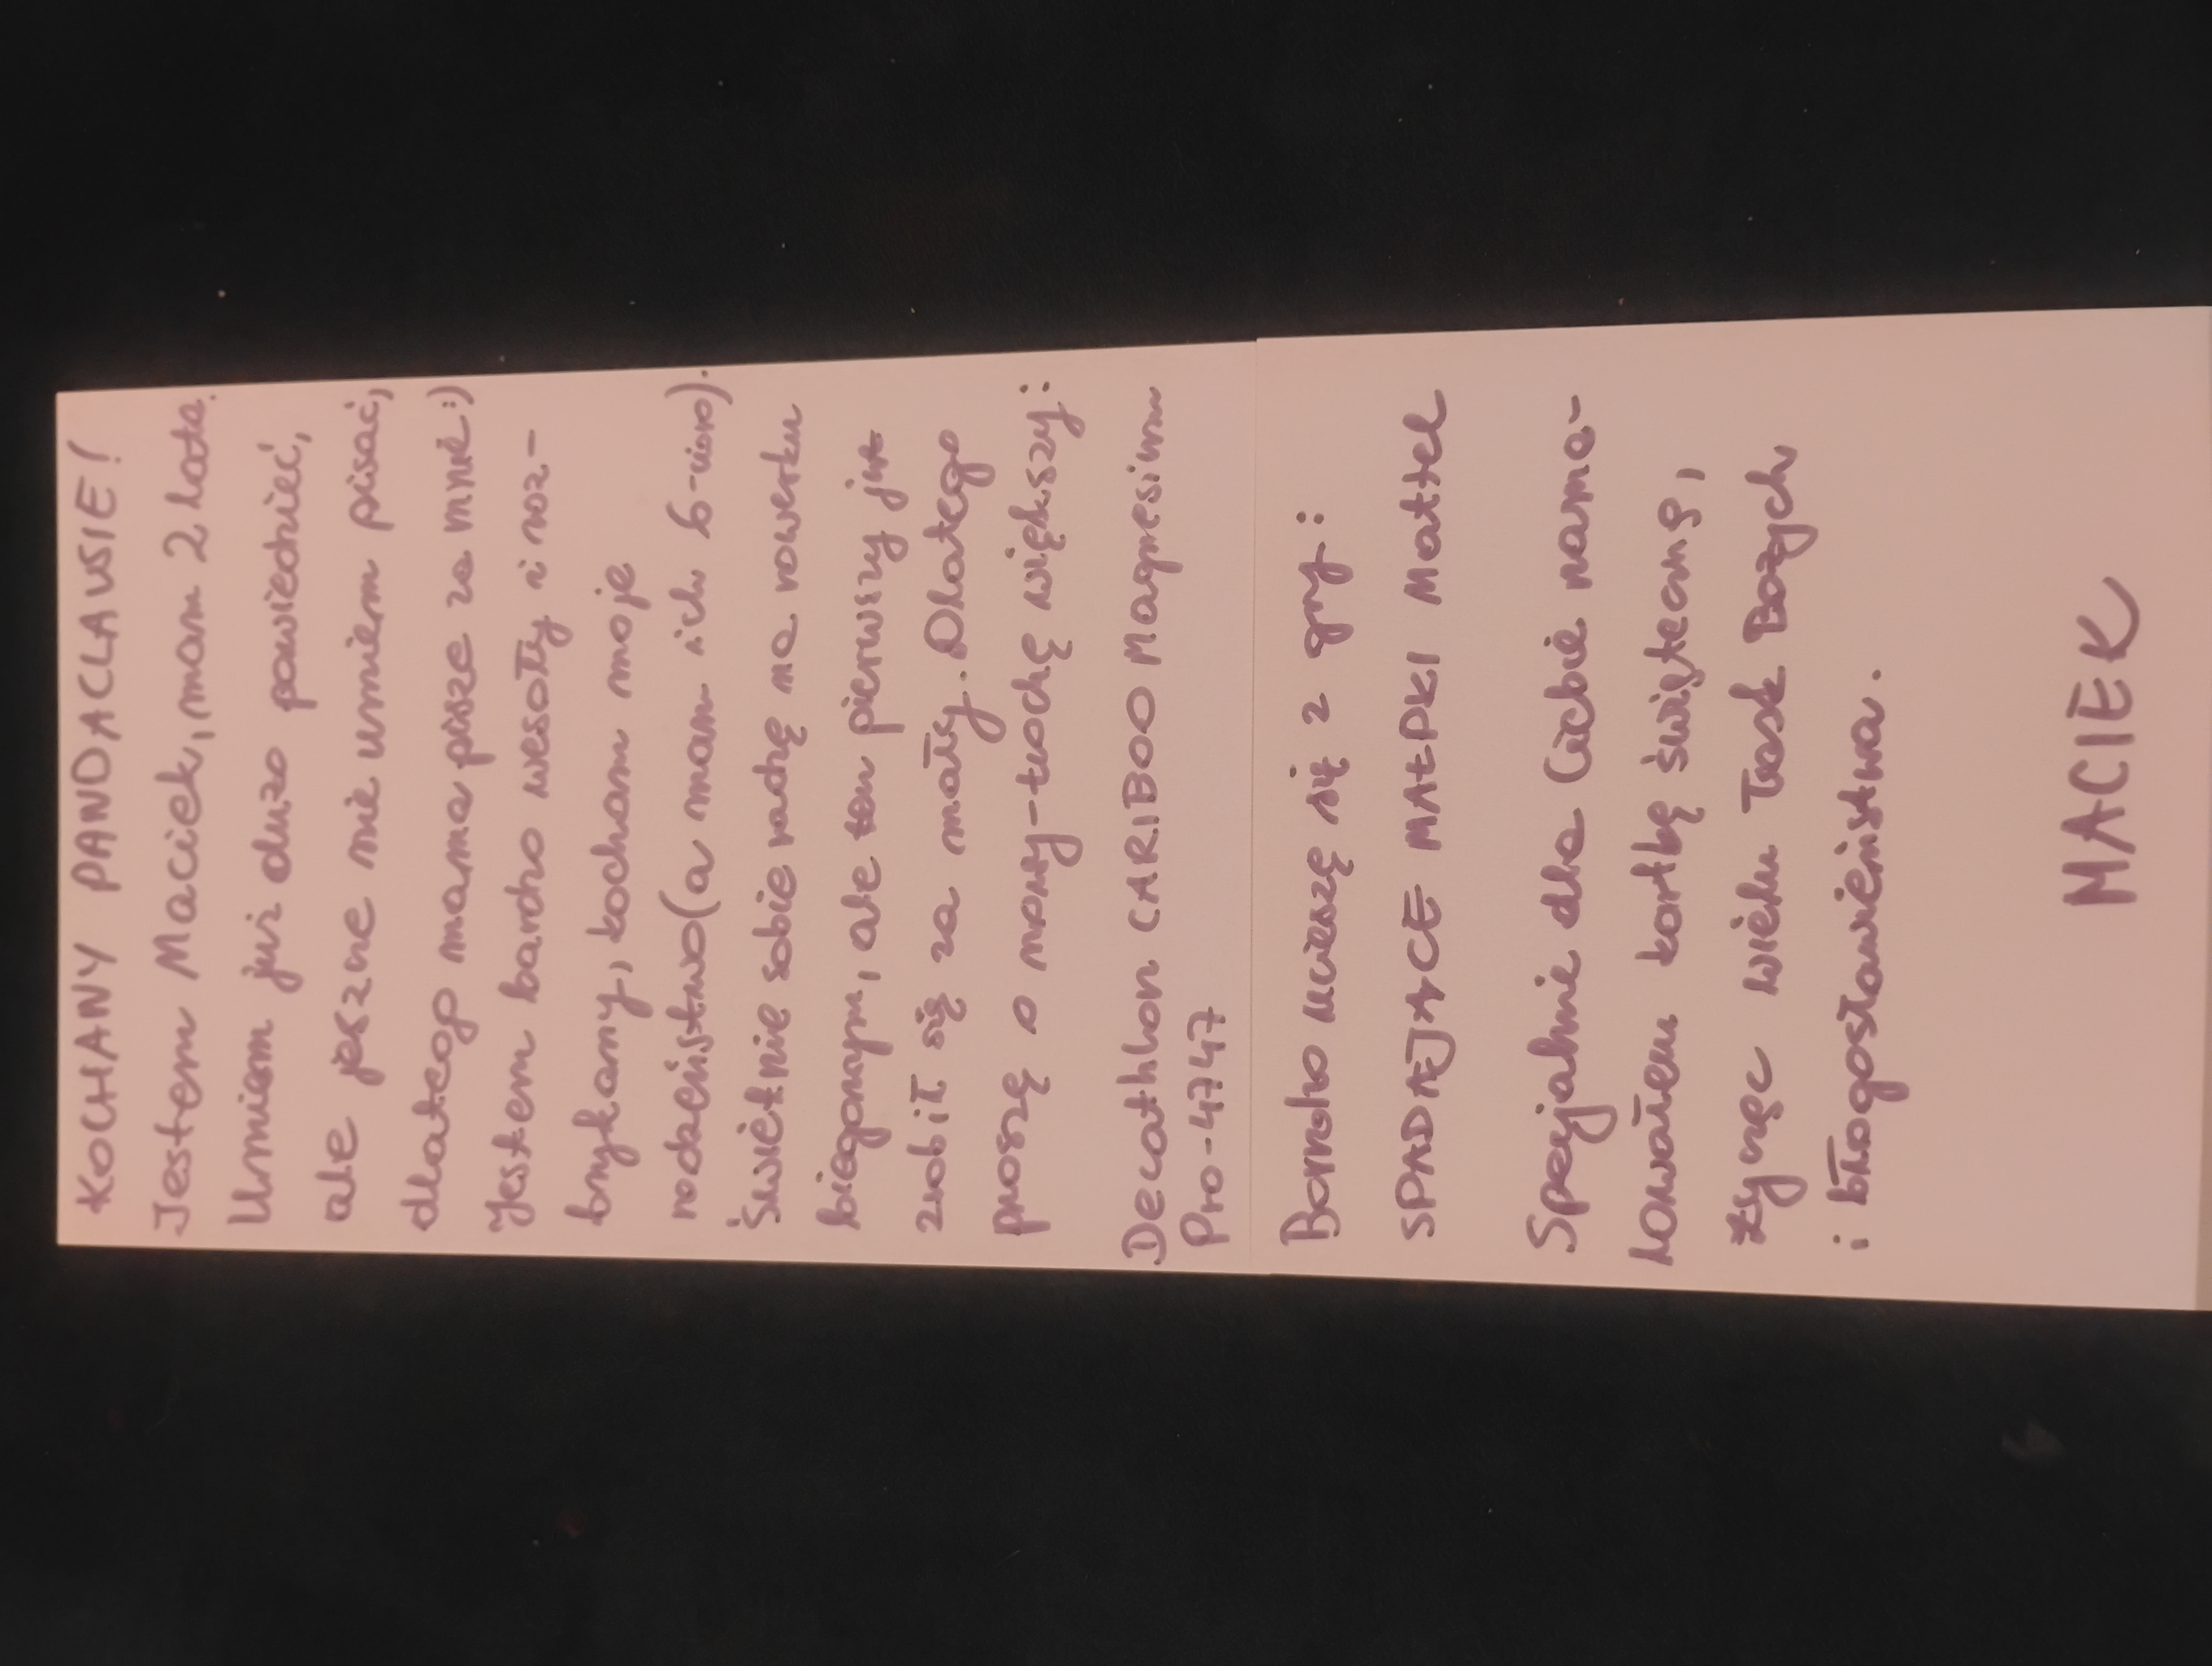 KOCHANY PANDACLAUSIE!
Jestem Maciek, mam 2 lata.
Umiem już dużo powiedzieć,
ale jeszcze nie umiem pisać,
dlatego mama pisze za mnie :)
Jestem bardzo wesoły i roz-
brykany, kocham moje
rodzeństwo (a mam ich 6-cioro).
Świetnie sobie radzę na rowerku
biegowym, ale ten pierwszy już
zrobił się za mały. Dlatego
proszę o nowy - trochę większy:
Decathlon CARIBOO Magnesium
Pro - 4747
Bardzo ucieszę się z gry:
SPADAJĄCE MAŁPKI Mattel
Specjalnie dla Ciebie nama-
lowałem kartkę świąteczną,
życząc wielu łask Bożych
i błogosławieństwa.
MACIEK